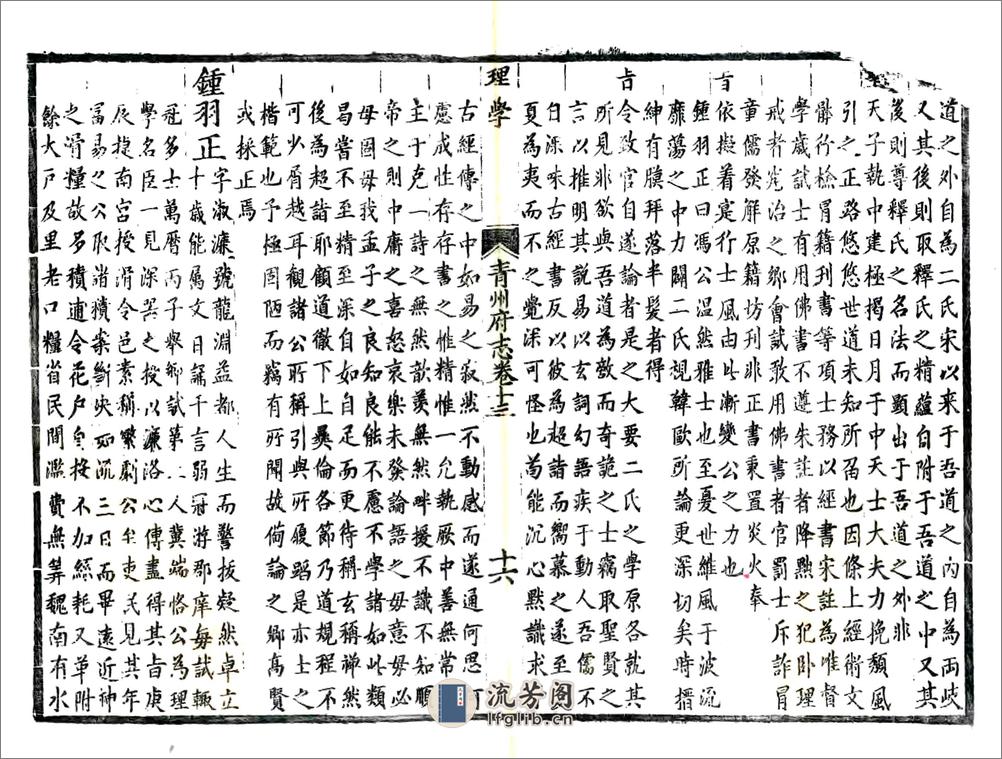 道之外自為二氏宋以来于吾道之內自為両岐
又其後則取釋氏之精蘊自附于吾道之中又其
後則尊釋氏之名法而顯出于吾道之外非
天子執中建極揭日月于中天士大夫力挽頹風
引之正路悠悠世道未知所届也因條上經術文
體行檢冒籍刊書等項務以經書宋註為唯督
學歲試士有用佛書不遵朱註者降黜之犯卧理
戒者究治之鄉會試敢用佛書者官罰士斥詐冒
童儒發解原籍坊刊非正書秉置炎火奉
旨依擬着寔行士風由此漸變公之力也
鍾羽正曰馮公温然雅士也至憂世維風于波流
靡蕩之中力闢二氏視韓歐所論更深切矣時搢
紳有牘拜落半髮者得
旨令致官自遂論者是之大要二氏之學原各就其
所見非欲與吾道為敵而奇詭之士竊取聖賢之
言以推明其說易以玄詞幻語疾于動人吾儒不
日深味古經書反以彼為超詣而嚮慕之遂至
夏為夷而不之覺深可怪也苟能沉心默識求
理學 青州府志卷十三 十六
古經傳之中如易之寂然不動感而遂通何思何
慮成性存存書之惟精惟一允執厥中善無常
主于克一詩之無然歆羨無然畔援不識不知順
帝之則中庸之喜怒哀樂未發論語之毋意毋必
毋固毋我孟子之良知良能不慮不學諸如此類
曷嘗不至精至深自如自足而更待稱玄稱禪然
後為超詣耶顧道徹下上彝倫各節乃道規程不
可少屑越耳觀諸公所稱引與所履蹈是亦士之
楷範也予極固陋而竊有所聞故備論之鄉髙賢
或採正焉
鍾羽正字淑濂號龍淵益都人生而警拔嶷然卓立
十歲能屬文日誦千言弱冠游郡庠每試輙
冠多士萬曆丙子舉鄉試第二人冀端恪公為理
學名臣一見深器之授以濂洛心傳盡得其旨庚
辰捷南宮授滑令邑素稱繁劇公年吏民見其年
冨易之公取諸積案斷决如流三日而畢逺近神
之滑糧故多積逋令花戶自按不加經耗又革附
餘大戶及里老口糧省民間濫費無筭魏南有水
流芳阁
lfglib.cn